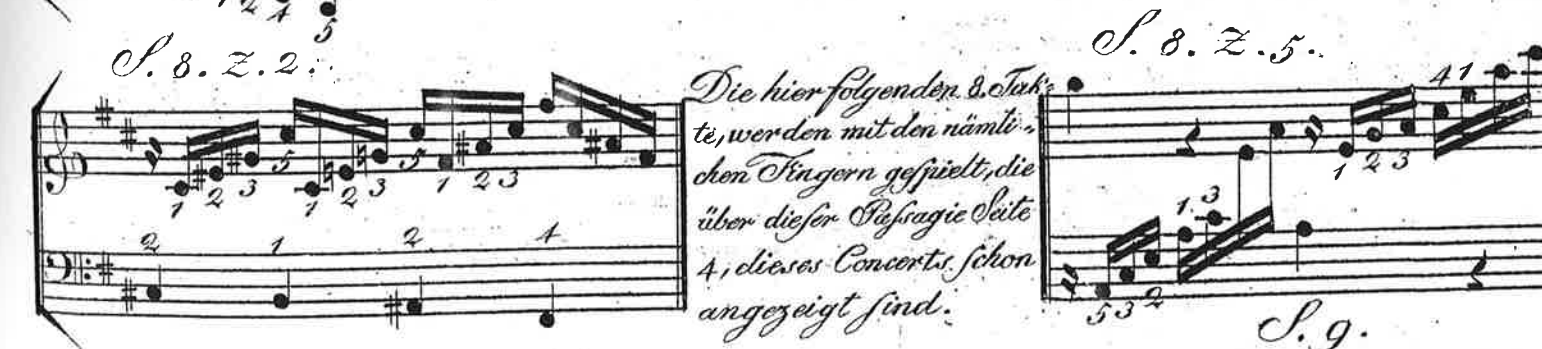 1 2 4
5
S. 8. Z. 2.
1 2 3 5 1 2 3 5 1 2 3
2 1 2 1
Die hier folgenden 8. Tak-
te, werden mit den nämli-
chen Fingern gespielt, die
über dieser Passagie Seite
4, dieses Concerts schon
angezeigt sind.
S. 8. Z. 5.
4 1
1 2 3
1. 3
5 3 2
S. 9.